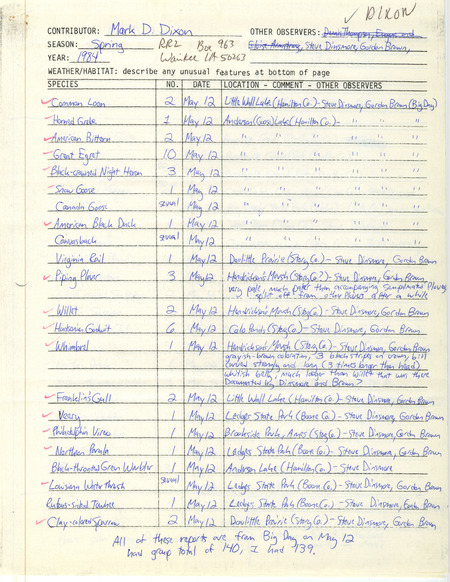 ✓ DIXON
CONTRIBUTOR: Mark D. Dixon OTHER OBSERVERS:
SEASON: Spring RR2 Box 963 Steve Dinsmore, Gordon Brown,
YEAR: 1984 Waukee IA 50263
WEATHER/HABITAT: describe any unusual features at bottom of page
SPECIES NO. DATE LOCATION - COMMENT - OTHER OBSERVERS
Common Loon 2 May 12 Little Wall Lake (Hamilton Co.) - Steve Dinsmore, Gordon Brown (Big Day)
Horned Grebe 1 May 12 Anderson (Goose) Lake (Hamilton Co.) - " "
American Bittern 2 May 12 " " " " "
Great Egret 10 May 12 " " " " "
Black-crowned Night Heron 3 May 12 " " " " "
Snow Goose 1 May 12 " " " " "
Canada Goose several May 12 " " " " "
American Black Duck 1 May 12 " " " " "
Canvasback several May 12 " " " " "
Virginia Rail 1 May 12 Doolittle Prairie (Story Co.) - Steve Dinsmore, Gordon Brown
Piping Plover 3 May 12 Hendrickson's Marsh (Story Co.?) - Steve Dinsmore, Gordon Brown
very pale, much paler than accompanying Semipalmated Plovers
split off from other Plovers after a while
Willet 2 May 12 Hendrickson's Marsh (Story Co.) - Steve Dinsmore, Gordon Brown
Hudsonian Godwit 6 May 12 Colo Ponds (Story Co.) - Steve Dinsmore, Gordon Brown
Whimbrel 1 May 12 Hendrickson's Marsh (Story Co.) - Steve Dinsmore, Gordon Brown
grayish-brown coloration, 3 black stripes on crown, bill
curved strongly and long (3 times longer than head)
whitish belly, much larger than Willet that was there
Documented by Dinsmore and Brown?
Franklin's Gull 2 May 12 Little Wall Lake (Hamilton Co.) - Steve Dinsmore, Gordon Brown
Veery 1 May 12 Ledges State Park (Boone Co.) - Steve Dinsmore, Gordon Brown
Philadelphia Vireo 1 May 12 Brookside Park, Ames (Story Co.) - Steve Dinsmore, Gordon Brown
Northern Parula 1 May 12 Ledges State Park (Boone Co.) - Steve Dinsmore, Gordon Brown
Black-throated Green Warbler 1 May 12 Anderson Lake (Hamilton Co.) - Steve Dinsmore
Louisiana Waterthrush several May 12 Ledges State Park (Boone Co.) - Steve Dinsmore, Gordon Brown
Rufous-sided Towhee 1 May 12 Ledges State Park (Boone Co.) - Steve Dinsmore, Gordon Brown
Clay-colored Sparrow 2 May 12 Doolittle Prairie (Story Co.) - Steve Dinsmore, Gordon Brown
All of these reports are from Big Day on May 12
had group total of 140, I had 139.